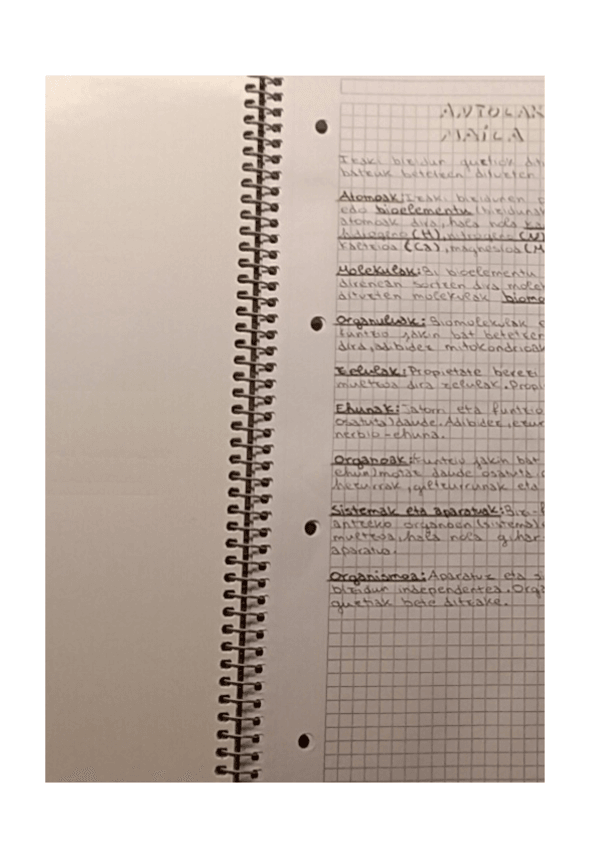 ANTOLAK
MAILA
Izaki bizidun guztiok dit
batzuk betetzen dituzten
Atomoak: Izaki bizidunen o
edo bioelementu (bizidunak
atomoak dira, hala nola
hidrogeno (H), nitrogeno (N)
kaltzioa (Ca), magnesioa (M
Molekulak: Bi bioelementu
direnean sortzen dira molek
dituzten molekulak biomo
Organuluak: Biomolekulak e
funtzio jakin bat betetzen
dira, adibidez mitokondrioak
Zelulak: Propietate berezi
multzoa dira zelulak. Propi
Ehunak: Jatorri eta funtzio
osatuta daude. Adibidez, ezur
nerbio-ehuna.
Organoak: Funtzio jakin bat
ehun) motaz daude osatuta
hezurrak, giltzurrunak eta
Sistemak eta aparatuak: Bizi-f
antzeko organoen (sistema)
multzoa, hala nola gihar
aparatua.
Organismoa: Aparatuz eta si
bizidun independentea. Orga
guztiak bete ditzake.